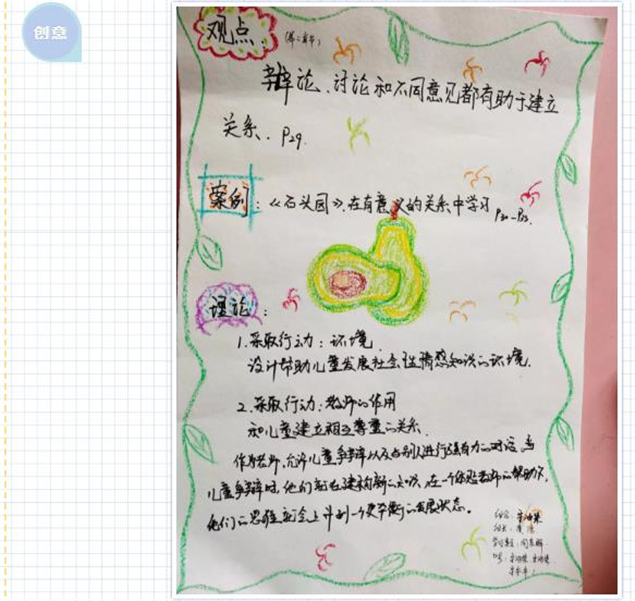 创意
观点
(第二章节)
辩论、讨论和不同意见都有助于建立
关系. P29.
案例:《石头园》.在有意义的关系中学习 P30-P33.
理论:
1.采取行动:环境
设计帮助儿童发展社会性情感知识的环境.
2.采取行动:教师的作用
和儿童建立相互尊重的关系.
作为老师,允许儿童争辩以及与别人进行强有力的对话,当
儿童争辩时,他们就在建构新的知识,在一个体贴老师的帮助下,
他们的思维就会上升到一个更平衡的发展状态.